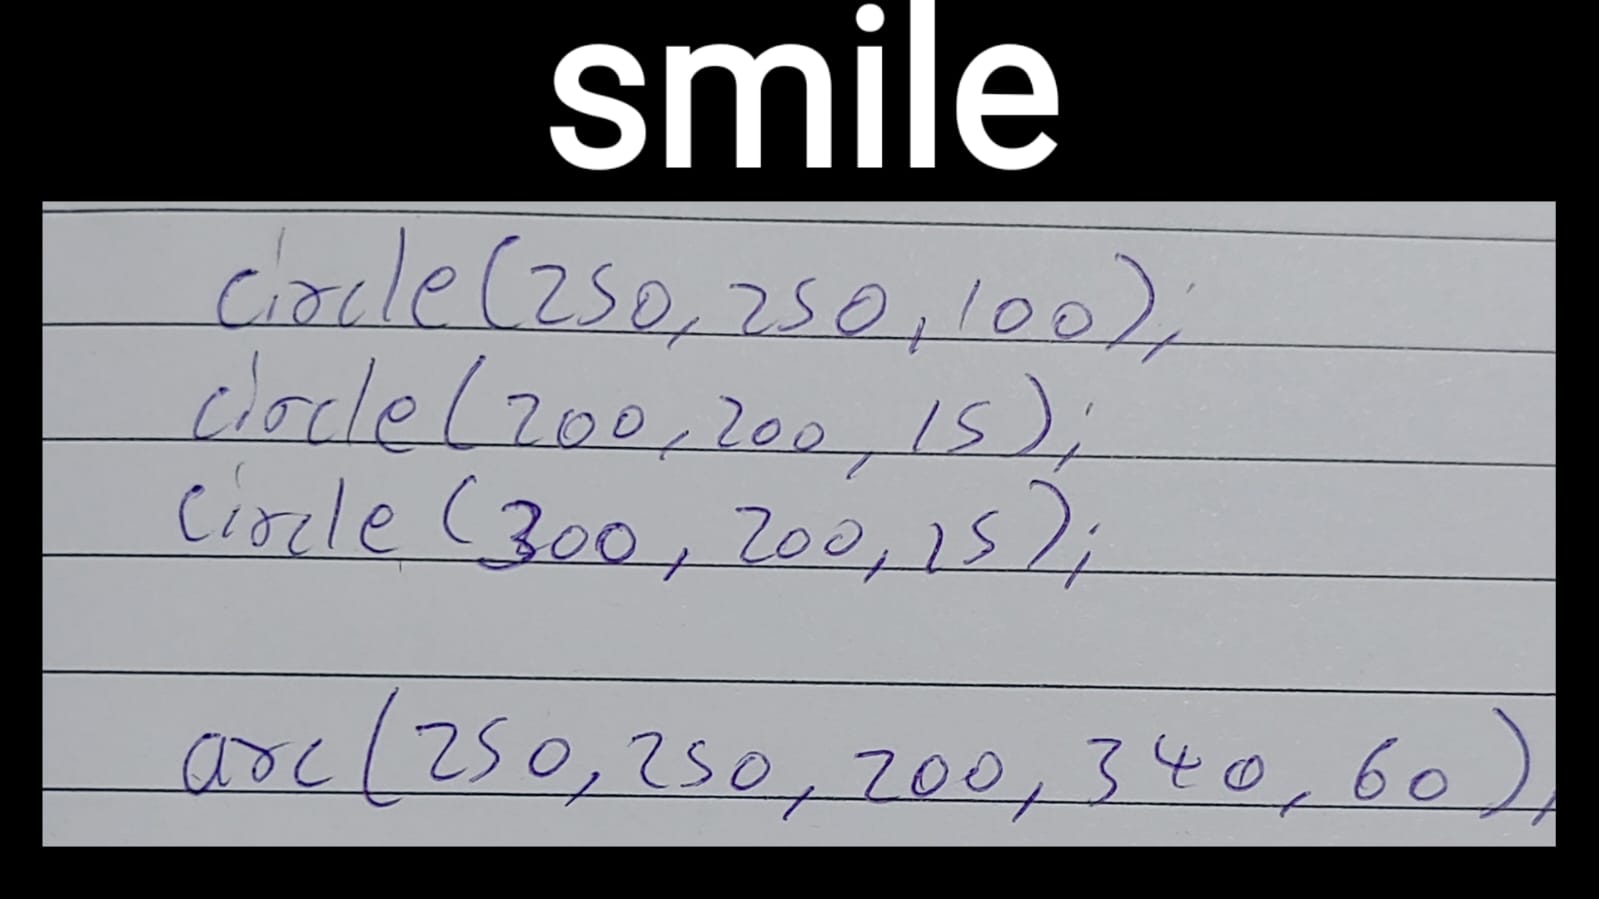 smile
circle(250,250,100);
circle(200,200,15);
circle(300,200,15);
arc(250,250,200,340,60);